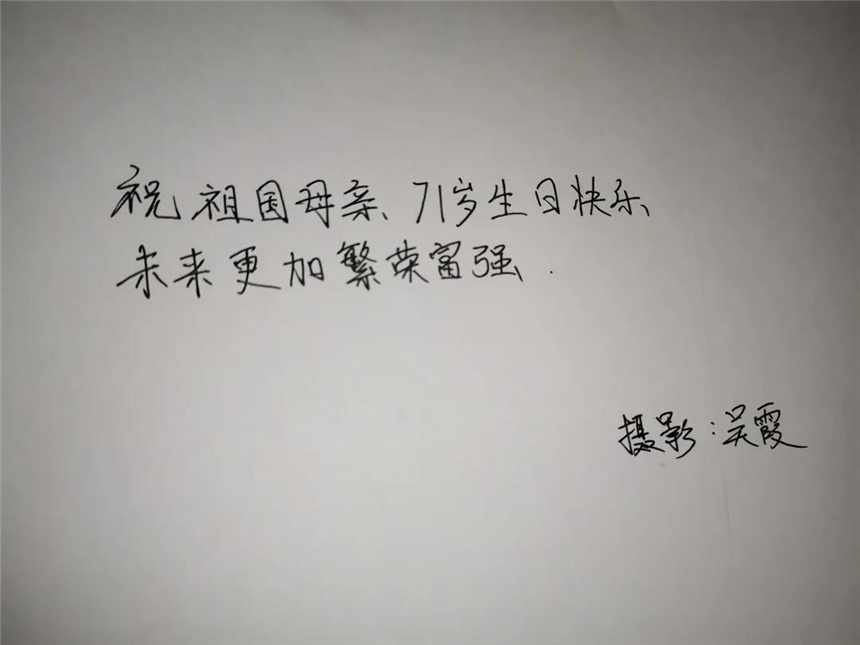 祝祖国母亲、71岁生日快乐、
未来更加繁荣富强、.
摄影:吴霞